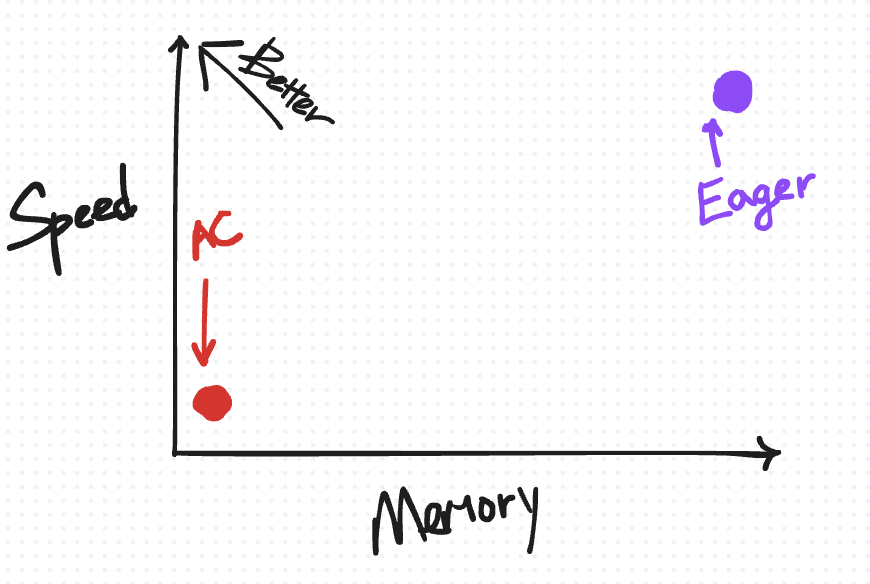 Better
Speed
AC
Eager
Memory